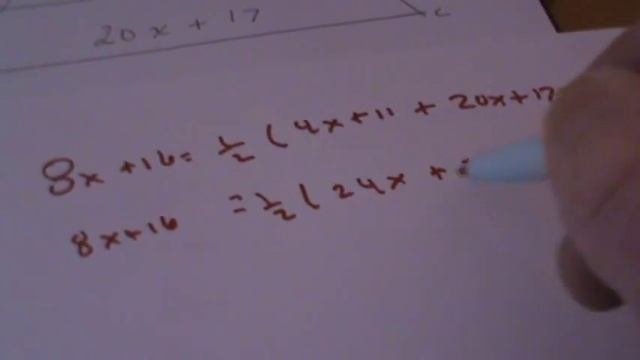 20x + 17
c
8x + 16 = 1/2 ( 4x + 11 + 20x + 17
8x + 16 = 1/2 ( 24x +